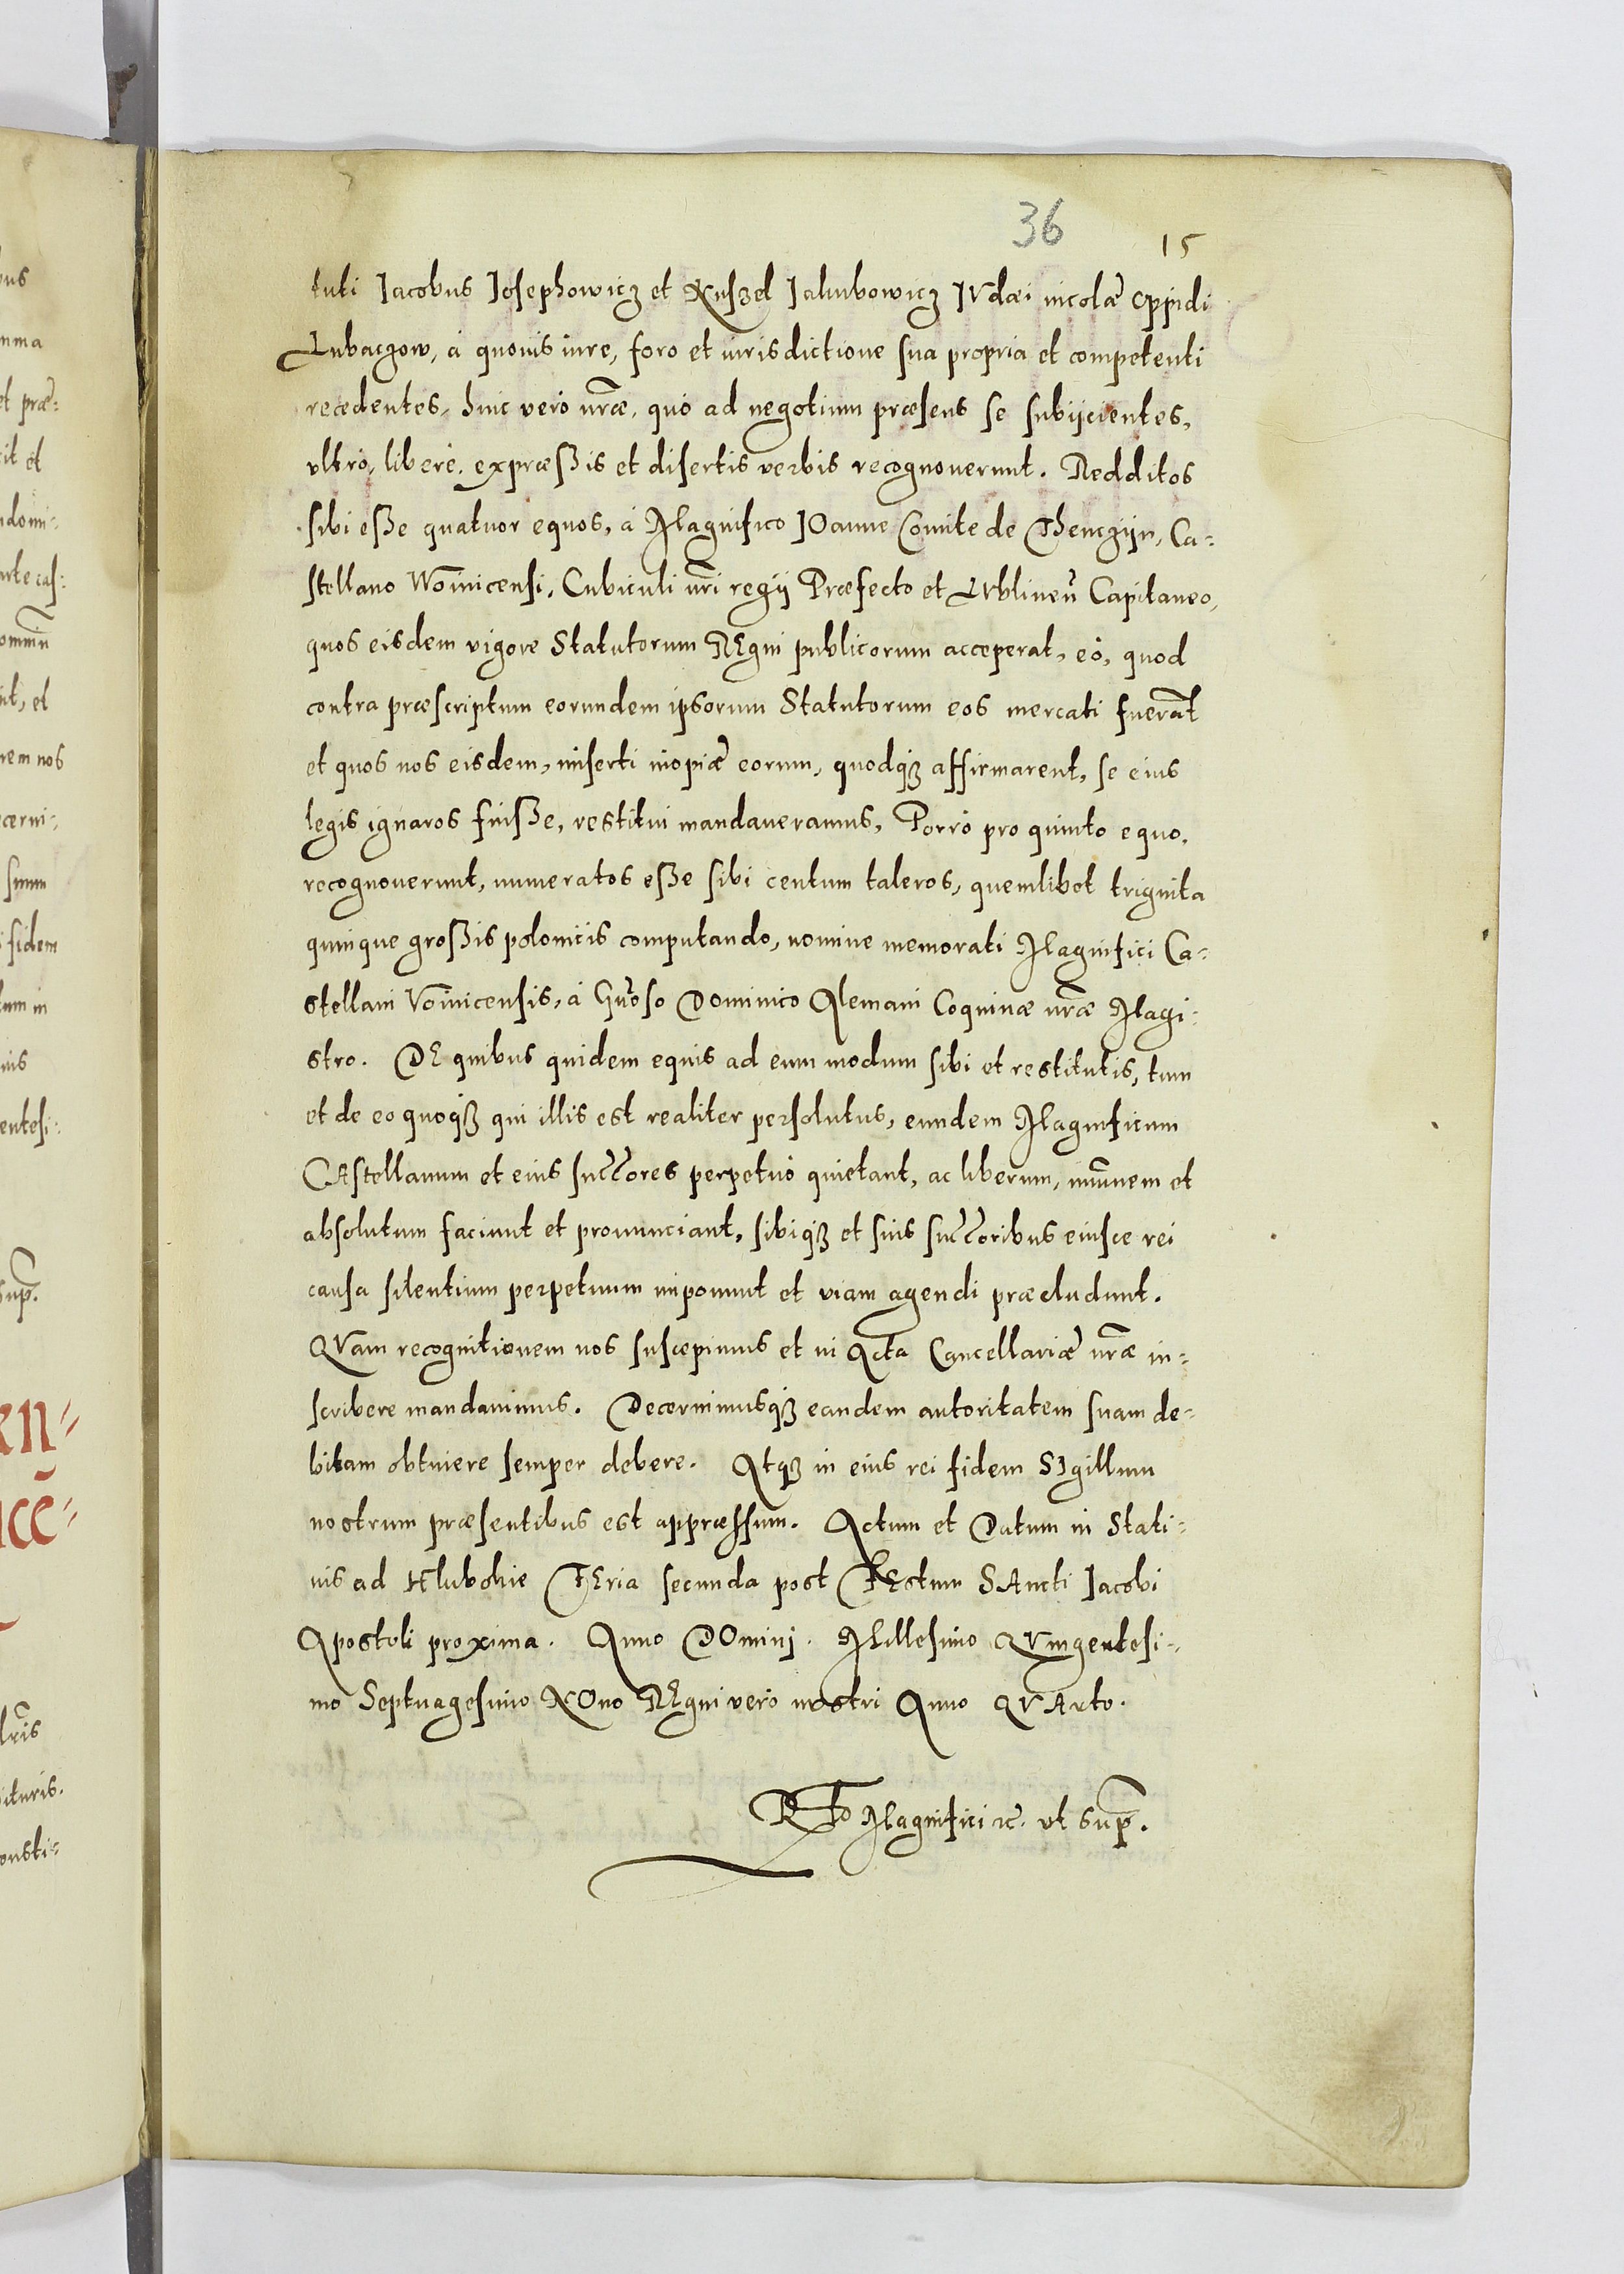 36
15
tuti Jacobus Josephowicz et Nuszel Jakubowicz JVdæi incolæ oppidi
Lubaczow, à quouis iure, foro et iurisdictione sua propria et competenti
recedentes, huic vero nr̃æ, quó ad negotium præsens se subijcientes,
vltró, liberè, expræßis et disertis verbis recognouerunt. Redditos
sibi eße quatuor equos, à Magnifico JOanne Comite de Thenczijn, Ca-
stellano Woinicensi, Cubiculi nr̃i regij Præfecto et LVblineñ Capitaneo,
quos eisdem vigore Statutorum REgni publicorum acceperat, eó, quod
contra præscriptum eorundem ipsorum Statutorum eos mercati fuerãt
et quos nos eisdem, miserti inopiæ eorum, quodq3 affirmarent, se eius
legis ignaros fuiße, restitui mandaueramus, Porrò pro quinto equo,
recognouerunt, numeratos eße sibi centum taleros, quemlibet triginta
quinque großis polonicis computando, nomine memorati Magnifici Ca-
stellani Voinicensis, à Gñoso Dominico Alemani Coquinæ nr̃æ Magi-
stro. DE quibus quidem equis ad eum modum sibi et restitutis, tum
et de eo quoq3 qui illis est realiter persolutus, eundem Magnificum
CAstellanum et eius succc̃ores perpetuò quietant, ac liberum, imũnem et
absolutum faciunt et pronunciant, sibiq3 et suis succc̃oribus eiusce rei
causa silentium perpetuum imponunt et viam agendi præcludunt.
QVam recognitionem nos suscepimus et in Acta Cancellariæ nr̃æ in-
scribere mandauimus. Decernimusq3 eandem autoritatem suam de-
bitam obtinere semper debere. Atq3 in eius rei fidem SIgillum
nostrum præsentibus est appræssum. Actum et Datum in Stati-
uis ad Hlubokie FEria secunda post FEstum SAncti Jacobi
Apostoli proxima. Anno DOminj. Millesimo QVingentesi-
mo Septuagesimo NOno REgni vero nostri Anno QVArto.
Rto Magnifici rc̃. vt sup̃.